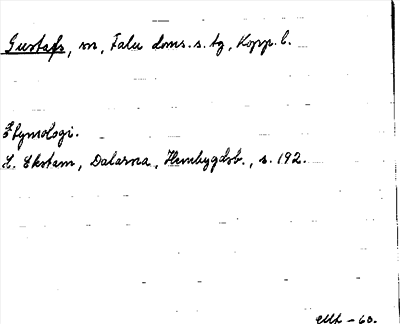 Gustafs, sn, Falu doms.s. tg, Kopp. l.
Etymologi.
L. Ekstam, Dalarna, Hembygdsb., s. 192.
-60.